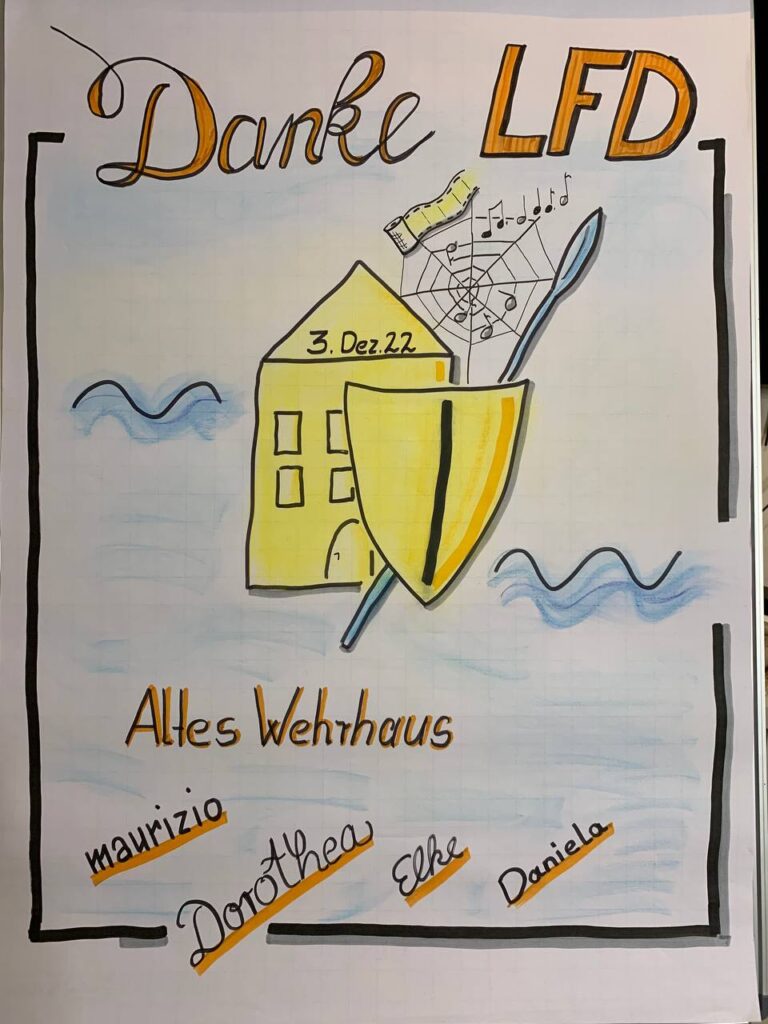 Danke LFD
3. Dez. 22
Altes Wehrhaus
maurizio
Dorothea
Elke
Daniela